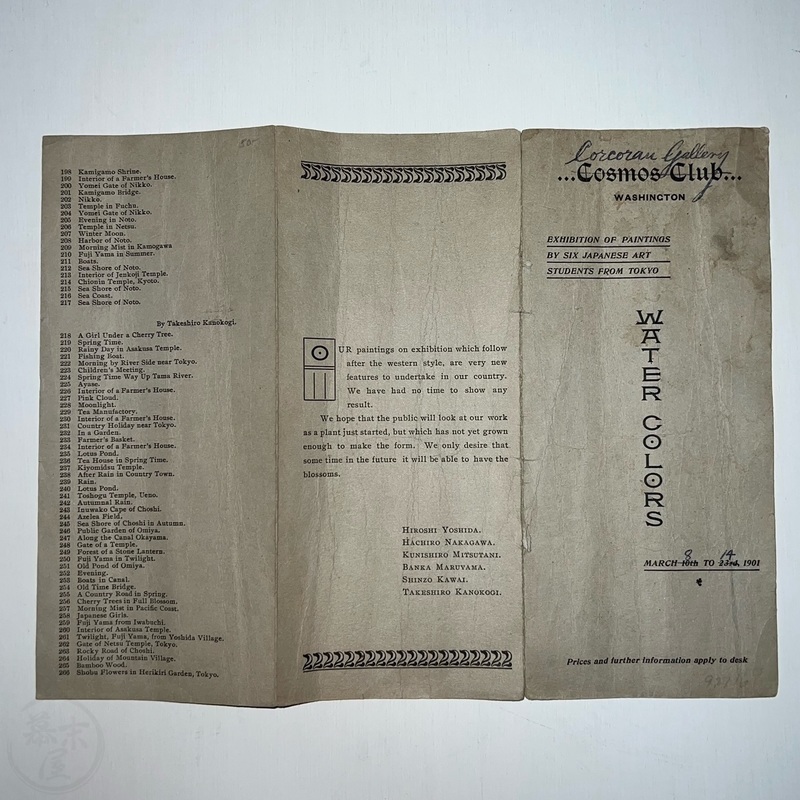 80
198 Kamigamo Shrine.
199 Interior of a Farmer's House.
200 Yomei Gate of Nikko.
201 Kamigamo Bridge.
202 Nikko.
203 Temple in Fuchu.
204 Yomei Gate of Nikko.
205 Evening in Noto.
206 Temple in Netsu.
207 Winter Moon.
208 Harbor of Noto.
209 Morning Mist in Kamogawa
210 Fuji Yama in Summer.
211 Boats.
212 Sea Shore of Noto.
213 Interior of Jenkoji Temple.
214 Chionin Temple, Kyoto.
215 Sea Shore of Noto.
216 Sea Coast.
217 Sea Shore of Noto.
By Takeshiro Kanokogi.
218 A Girl Under a Cherry Tree.
219 Spring Time.
220 Rainy Day in Asakusa Temple.
221 Fishing Boat.
222 Morning by River Side near Tokyo.
223 Children's Meeting.
224 Spring Time Way Up Tama River.
225 Ayase.
226 Interior of a Farmer's House.
227 Pink Cloud.
228 Moonlight.
229 Tea Manufactory.
230 Interior of a Farmer's House.
231 Country Holiday near Tokyo.
232 In a Garden.
233 Farmer's Basket.
234 Interior of a Farmer's House.
235 Lotus Pond.
236 Tea House in Spring Time.
237 Kiyomidsu Temple.
238 After Rain in Country Town.
239 Rain.
240 Lotus Pond.
241 Toshogu Temple, Ueno.
242 Autumnal Rain.
243 Inuwako Cape of Choshi.
244 Azelea Field.
245 Sea Shore of Choshi in Autumn.
246 Public Garden of Omiya.
247 Along the Canal Okayama.
248 Gate of a Temple.
249 Forest of a Stone Lantern.
250 Fuji Yama in Twilight.
251 Old Pond of Omiya.
252 Evening.
253 Boats in Canal.
254 Old Time Bridge.
255 A Country Road in Spring.
256 Cherry Trees in Full Blossom.
257 Morning Mist in Pacific Coast.
258 Japanese Girls.
259 Fuji Yama from Iwabuchi.
260 Interior of Asakusa Temple.
261 Twilight, Fuji Yama, from Yoshida Village.
262 Gate of Netsu Temple, Tokyo.
263 Rocky Road of Choshi.
264 Holiday of Mountain Village.
265 Bamboo Wood.
266 Shobu Flowers in Herikiri Garden, Tokyo.
OUR paintings on exhibition which follow
after the western style, are very new
features to undertake in our country.
We have had no time to show any
result.
We hope that the public will look at our work
as a plant just started, but which has not yet grown
enough to make the form. We only desire that
some time in the future it will be able to have the
blossoms.
HIROSHI YOSHIDA.
HACHIRO NAKAGAWA.
KUNISHIRO MITSUTANI.
BANKA MARUYAMA.
SHINZO KAWAI.
TAKESHIRO KANOKOGI.
Corcoran Gallery
...Cosmos Club...
WASHINGTON
EXHIBITION OF PAINTINGS
BY SIX JAPANESE ART
STUDENTS FROM TOKYO
WATER COLORS
8 14
MARCH 10th TO 23rd, 1901
Prices and further information apply to desk
幕末屋